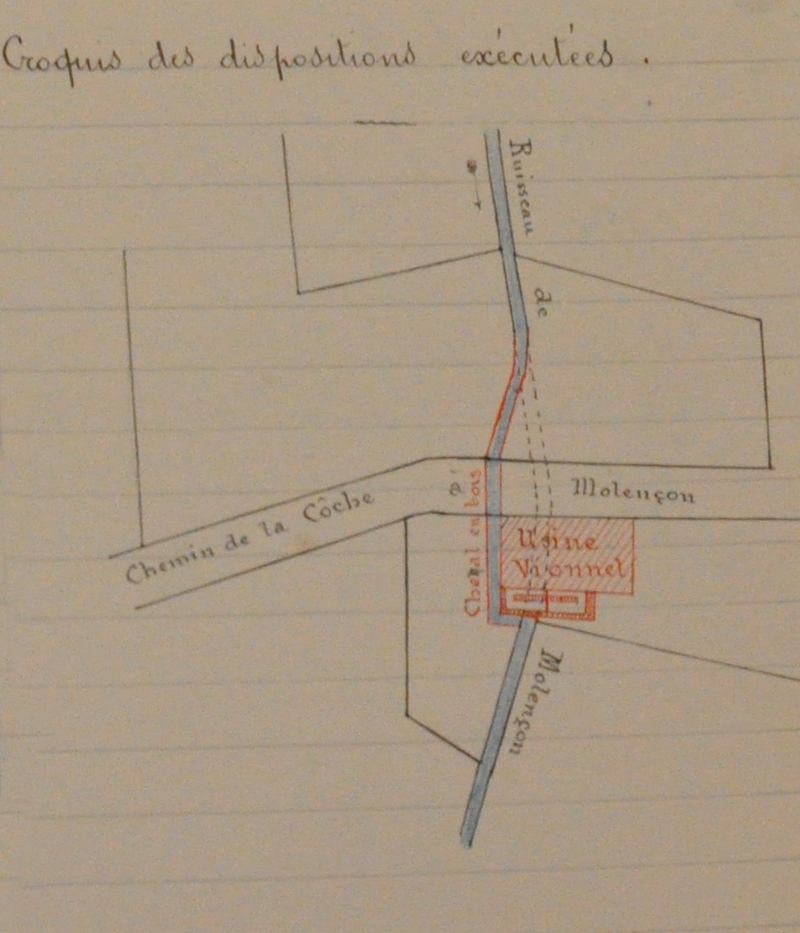 Croquis des dispositions exécutées.
Ruisseau
de
Chemin de la Côche
à
Molençon
Chenal en bois
Usine
Vionnel
Molençon